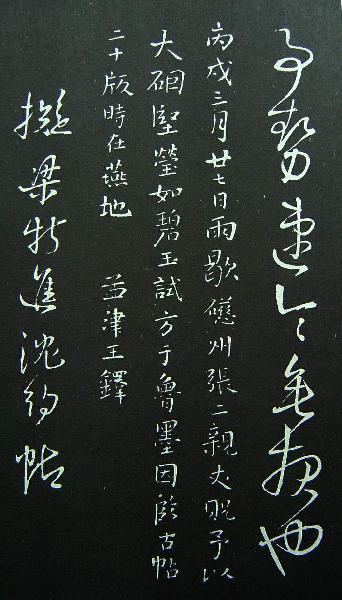 勢速無也
丙戌三月廿七日雨歇德州張二親丈貺予以
大硐堅瑩如碧玉試方于魯墨因臨古帖
二十版時在燕地　孟津王鐸
擬梁特進沈約帖